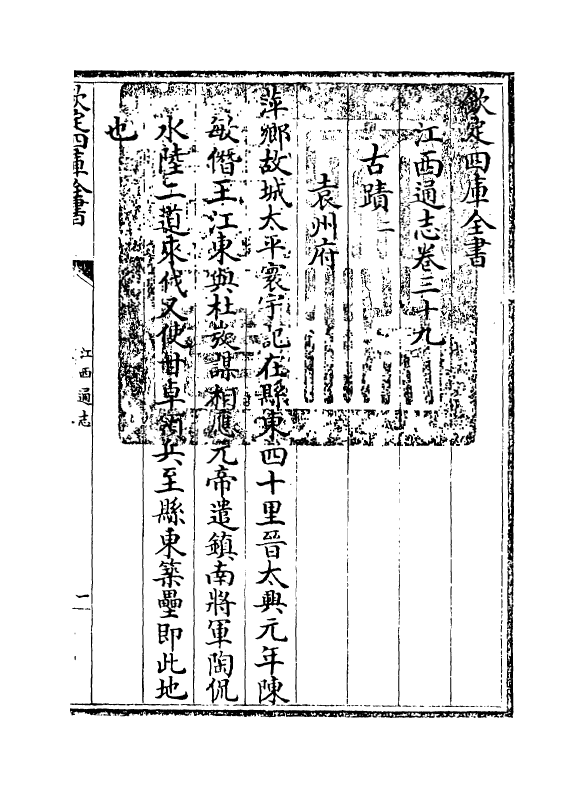 欽定四庫全書
江西通志卷三十九
古蹟二
袁州府
萍鄉故城太平寰宇記在縣東四十里晉太興元年陳
敏僭王江東與杜弢謀相應元帝遣鎮南將軍陶侃
水陸二道來伐又使甘卓領兵至縣東築壘即此地
也
欽定四庫全書
江西通志